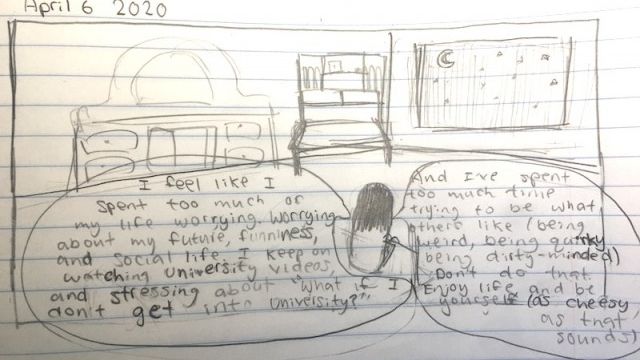 April 6 2020
I feel like I
spent too much or
my life worrying. Worrying
about my future, funniness,
and social life. I keep on
watching university videos,
and stressing about "What if I
don't get into University?"
And I've spent
too much time
trying to be what
others like (being
weird, being quirky
being dirty-minded)
Don't do that.
Enjoy life and be
yourself (as cheesy
as that
sounds)